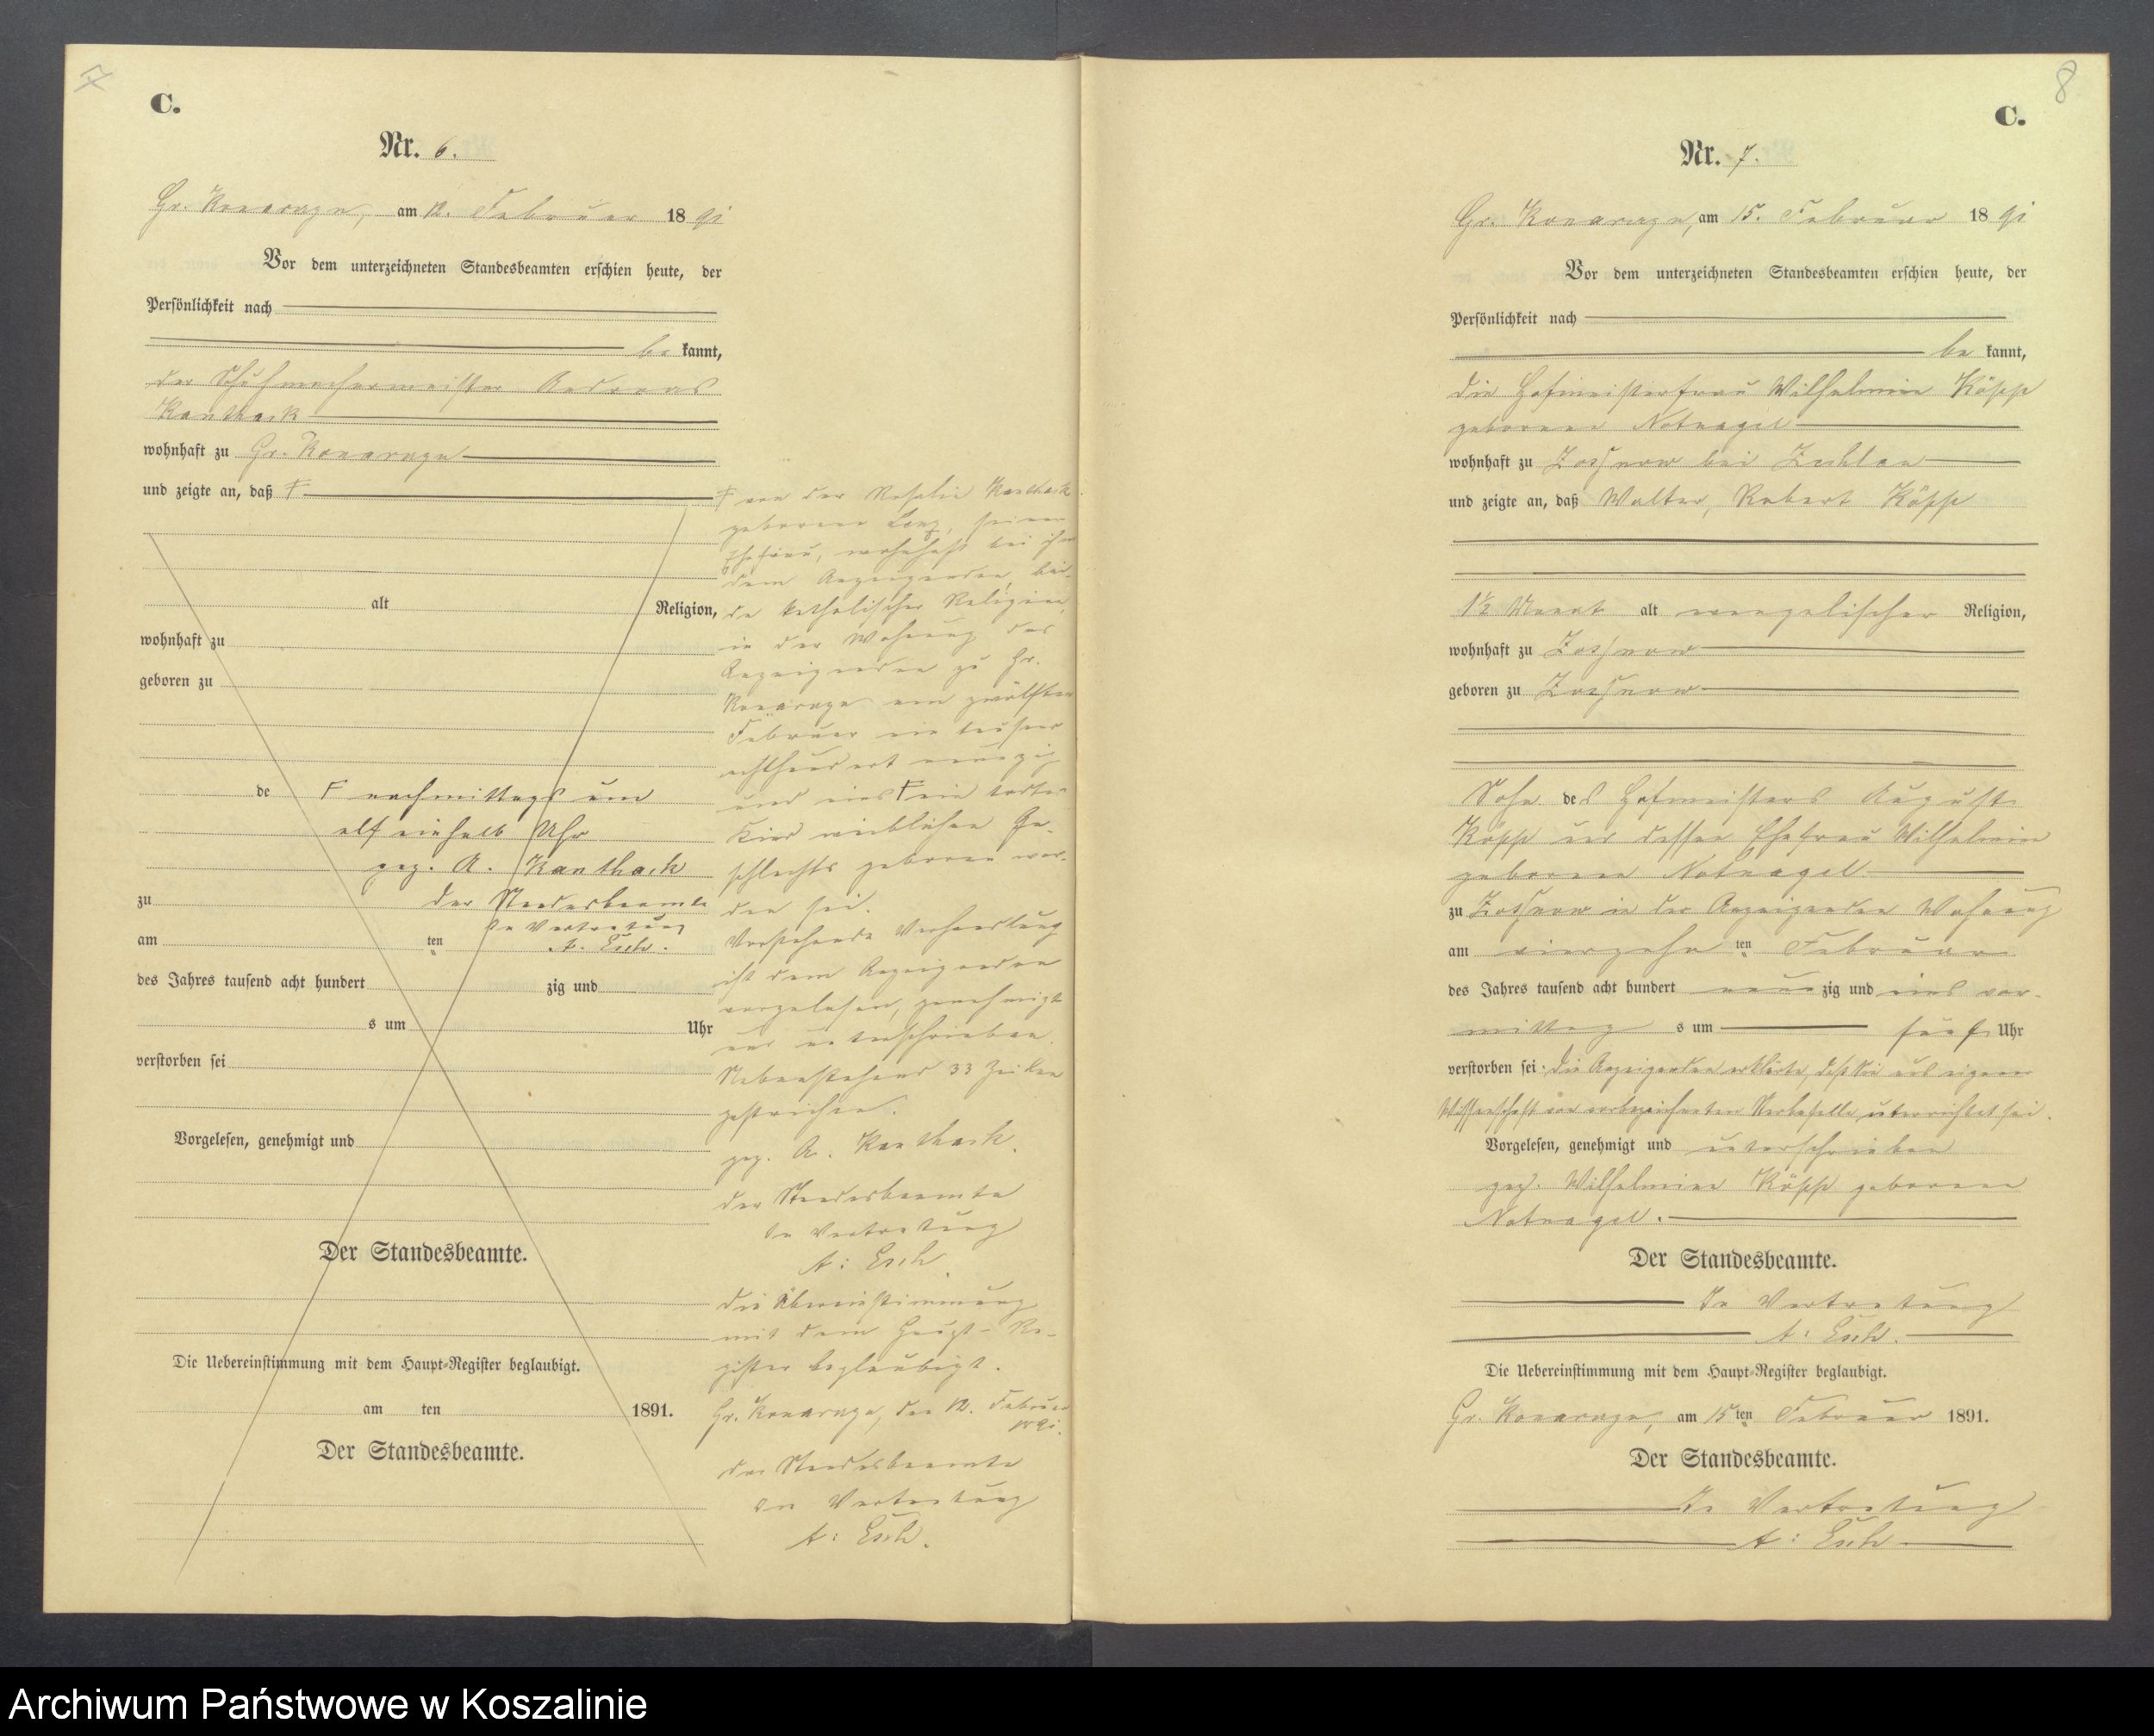 C.
Nr. 6.
Gr. Konarczyn, am 12. Februar 1891
Vor dem unterzeichneten Standesbeamten erschien heute, der
Persönlichkeit nach
be kannt,
der Schuhmachermeister Andreas
Kanthack
wohnhaft zu Gr. Konarczyn
und zeigte an, daß F
alt Religion,
wohnhaft zu
geboren zu
de F nachmittags um
elf einhalb Uhr
gez. A. Kanthack
zu der Standesbeamte
In Vertretung
am ten A. Esch.
des Jahres tausend acht hundert zig und
s um Uhr
verstorben sei
Vorgelesen, genehmigt und
Der Standesbeamte.
Die Uebereinstimmung mit dem Haupt-Register beglaubigt.
am ten 1891.
Der Standesbeamte.
F von der Rosalie Kanthack
geborene Lenz, seiner
Ehefrau, wohnhaft bei ihm
dem Anzeigenden, bei-
de katholischer Religion,
in der Wohnung des
Anzeigenden zu Gr.
Konarczyn am zwölften
Februar ein tausend
achthundert neunzig
und eins F ein todtes
Kind weiblichen Ge-
schlechts geboren wor-
den sei.
Vorstehende Verhandlung
ist dem Anzeigenden
vorgelesen, genehmigt
und unterschrieben.
Nebenstehend 33 Zeilen
gestrichen.
gez. A. Kanthack.
der Standesbeamte
In Vertretung
A: Esch
die Übereinstimmung
mit dem Haupt-Re-
gister beglaubigt.
Gr. Konarczyn, den 12. Februar
1891.
der Standesbeamte
In Vertretung
A: Esch.
8
C.
Nr. 7.
Gr. Konarczyn, am 15. Februar 1891
Vor dem unterzeichneten Standesbeamten erschien heute, der
Persönlichkeit nach
be kannt,
die Hofmeisterfrau Wilhelmine Köpp
geborene Notnagel
wohnhaft zu bei
und zeigte an, daß Walter, Robert Köpp
1½ Monat alt evangelischer Religion,
wohnhaft zu
geboren zu
Sohn des Hofmeisters August
Köpp und dessen Ehefrau Wilhelmine
geborene Notnagel
zu in der Anzeigenden Wohnung
am vierzehn ten Februar
des Jahres tausend acht hundert neun zig und eins vor-
mittag s um fünf Uhr
verstorben sei: die Anzeigenden erklärte, daß sie aus eigener
Wissenschaft von vorbezeichneten Sterbefalle unterrichtet sei.
Vorgelesen, genehmigt und unterschrieben
gez. Wilhelmine Köpp geborene
Notnagel.
Der Standesbeamte.
In Vertretung
A: Esch.
Die Uebereinstimmung mit dem Haupt-Register beglaubigt.
Gr. Konarczyn, am 15 ten Februar 1891.
Der Standesbeamte.
In Vertretung
A: Esch
Archiwum Państwowe w Koszalinie